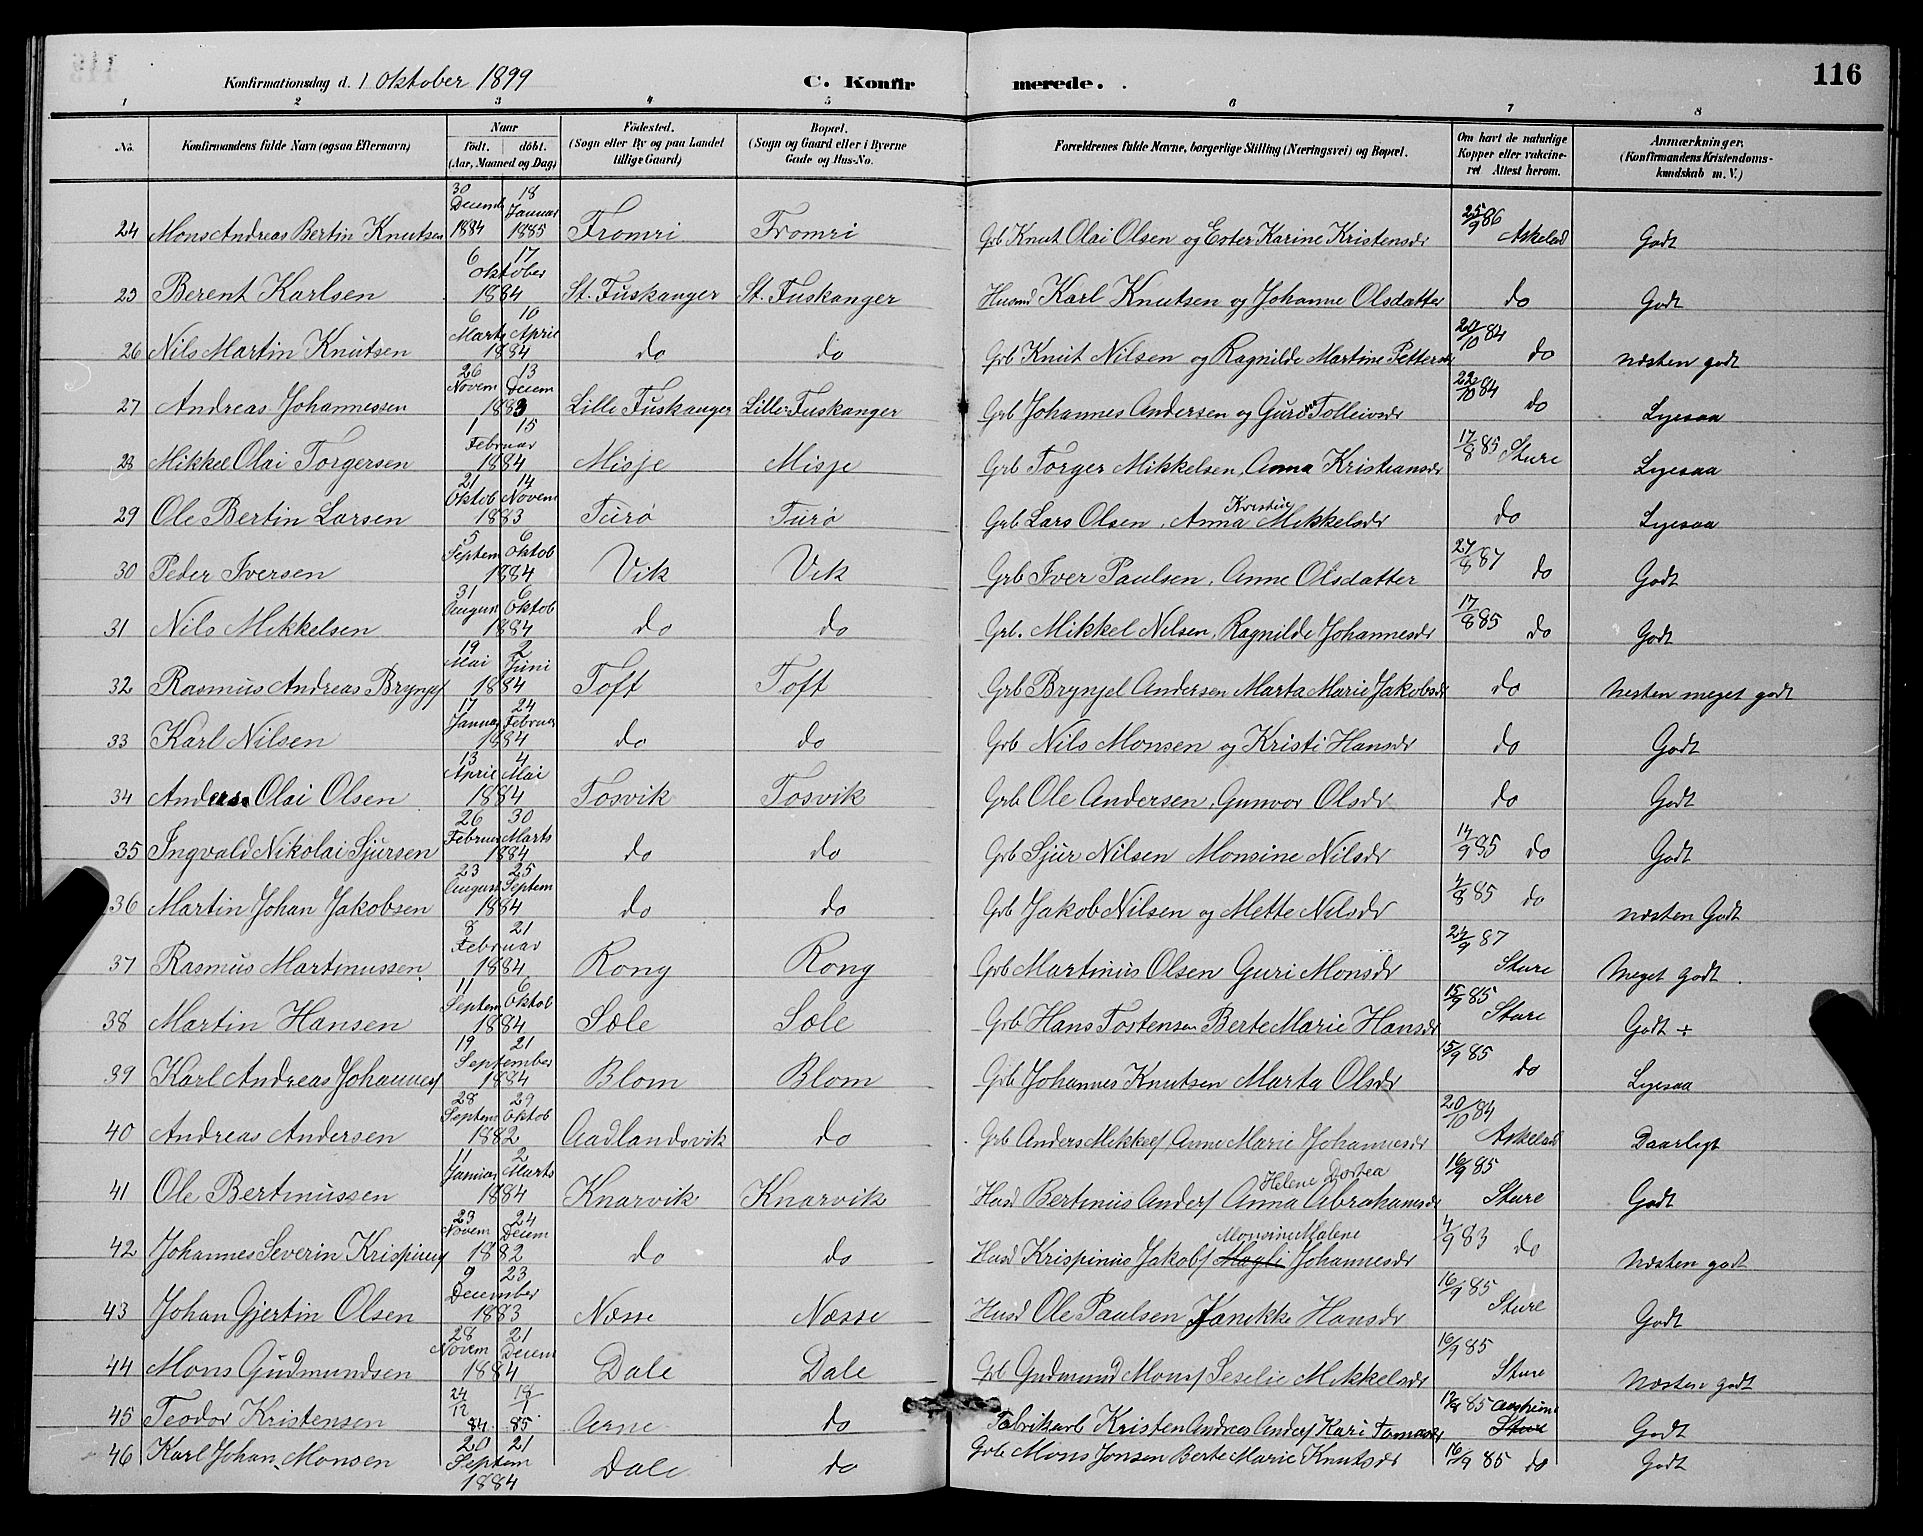 Konfirmationsdag d. 1 Oktober 1899 C. Konfirmerede. 116
1 2 3 4 5 6 7 8
No. Konfirmandens fulde Navn (ogsaa Efternavn) Naar født. døbt. (Aar, Maaned og Dag) Fødested. (Sogn eller By og paa Landet tillige Gaard) Bopæl. (Sogn og Gaard eller i Byerne Gade og Hus-No. Forældrenes fulde Navne, borgerlige Stilling (Næringsvei) og Bopæl. Om havt de naturlige Kopper eller vakcineret Attest herom. Anmærkninger. (Konfirmandens Kristendomskundskab m. V.)
24 Mons Andreas Bertin Knutsen 30 Decemb 1884 18 Januar 1885 Tromri Tromri Grb Knut Olai Olsen og Ester Karine Kristensdr 25/9 86 Askelad Godt
25 Berent Karlsen 6 17 Oktober 1884 St. Fuskanger St. Fuskanger Husmd Karl Knutsen og Johanne Olsdatter do Godt
26 Nils Martin Knutsen 6 Marts 10 April 1884 do do Grb Knut Nilsen og Ragnilde Martine Pettersdr 20/10 84 do næsten godt
27 Andreas Johannessen 26 Novem 13 Decem 1883 Lille Fuskanger Lille Fuskanger Grb Johannes Andersen og Guro Tolleivsdr 22/10 84 do Lyesaa
28 Mikkel Olai Torgersen 1 15 Februar 1884 Misje Misje Grb Torger Mikkelsen, Anna Kristiansdr 17/8 85 Sture Lyesaa
29 Ole Bertin Larsen 21 Oktob 14 Novem 1883 Turø Turø Grb Lars Olsen, Anna Kristine Mikkelsdr do Lyesaa
30 Peder Iversen 5 Septem 6 Oktob 1884 Vik Vik Grb Iver Paulsen, Anne Olsdatter 27/8 87 do Godt
31 Nils Mikkelsen 31 August 6 Oktob 1884 do do Grb. Mikkel Nilsen, Ragnilde Johannesdr 17/8 85 do Godt
32 Rasmus Andreas Brynjelf 19 Mai 2 Juni 1884 Toft Toft Grb Brynjel Andersen Marta Marie Jakobsdr do Nesten meget godt
33 Karl Nilsen 17 Januar 24 Februar 1884 do do Grb Nils Monsen og Kristi Hansdr do Godt
34 Anders Olai Olsen 13 April 4 Mai 1884 Tosvik Tosvik Grb Ole Andersen, Gunvor Olsdr do Godt
35 Ingvald Nikolai Sjursen 26 Februar 30 Marts 1884 do do Grb Sjur Nilsen Monsine Nilsdr 14/9 85 do Godt
36 Martin Johan Jakobsen 23 August 25 Septem 1884 do do Grb Jakob Nilsen og Mette Nilsdr 4/8 85 do næsten Godt
37 Rasmus Martinussen 8 21 Februar 1884 Rong Rong Grb Martinus Olsen Guri Monsdr 24/9 87 Sture Meget godt.
38 Martin Hansen 11 Septem 6 Oktob 1884 Sæle Sæle Grb Hans Tostensen Berte Marie Hansdr 15/9 85 Sture Godt ÷
39 Karl Andreas Johannesf 19 21 September 1884 Blom Blom Grb Johannes Knutsen Marta Olsdr 15/9 85 do Lyesaa
40 Andreas Andersen 28 Septem 29 Oktob 1882 Aadlandsvik do Grb Anders Mikkelf Anne Marie Johannesdr 20/10 84 Askelad Daarligt
41 Ole Bertinussen 11 Januar 2 Marts 1884 Knarvik Knarvik Husd Bertinus Andersf Anna Helene Dortea Abrahamsdr 16/9 85 Sture Godt
42 Johannes Severin Krispinusf 23 Novem 24 Decem 1882 do do Husd Krispinus Jakobf Magli Monsine Malene Johannesdr 4/9 83 do Næsten godt
43 Johan Gjertin Olsen 9 23 December 1883 Næsse Næsse Husd Ole Paulsen Janikke Hansdr 16/9 85 Sture Godt
44 Mons Gudmundsen 28 Novem 21 Decem 1884 Dale Dale Grb Gudmund Monsf Seselie Mikkelsdr 16/9 85 Sture Næsten godt
45 Teodor Kristensen 24/12 84. 18/1 85 Arne do Fabrikarb Kristen Andreas Andersf Kari Tomasdr 85 Sture Godt
46 Karl Johan Monsen 20 21 Septem 1884 Dale do Grb Mons Jonsen Berte Marie Knutsdr 16/9 85 do Godt